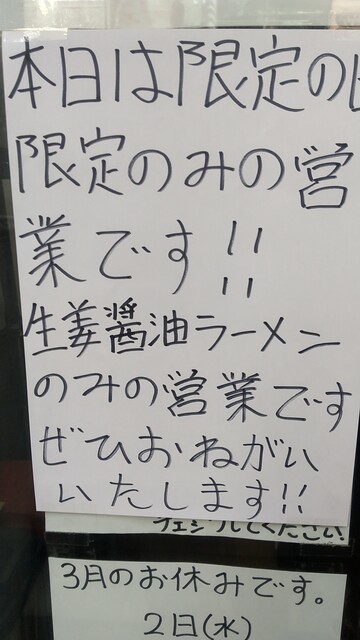 本日は限定の日
限定のみの営
業です!!
生姜醤油ラーメン
のみの営業です
ぜひおねがい
いたします!!
てください!
3月のお休みです。
2日(水)